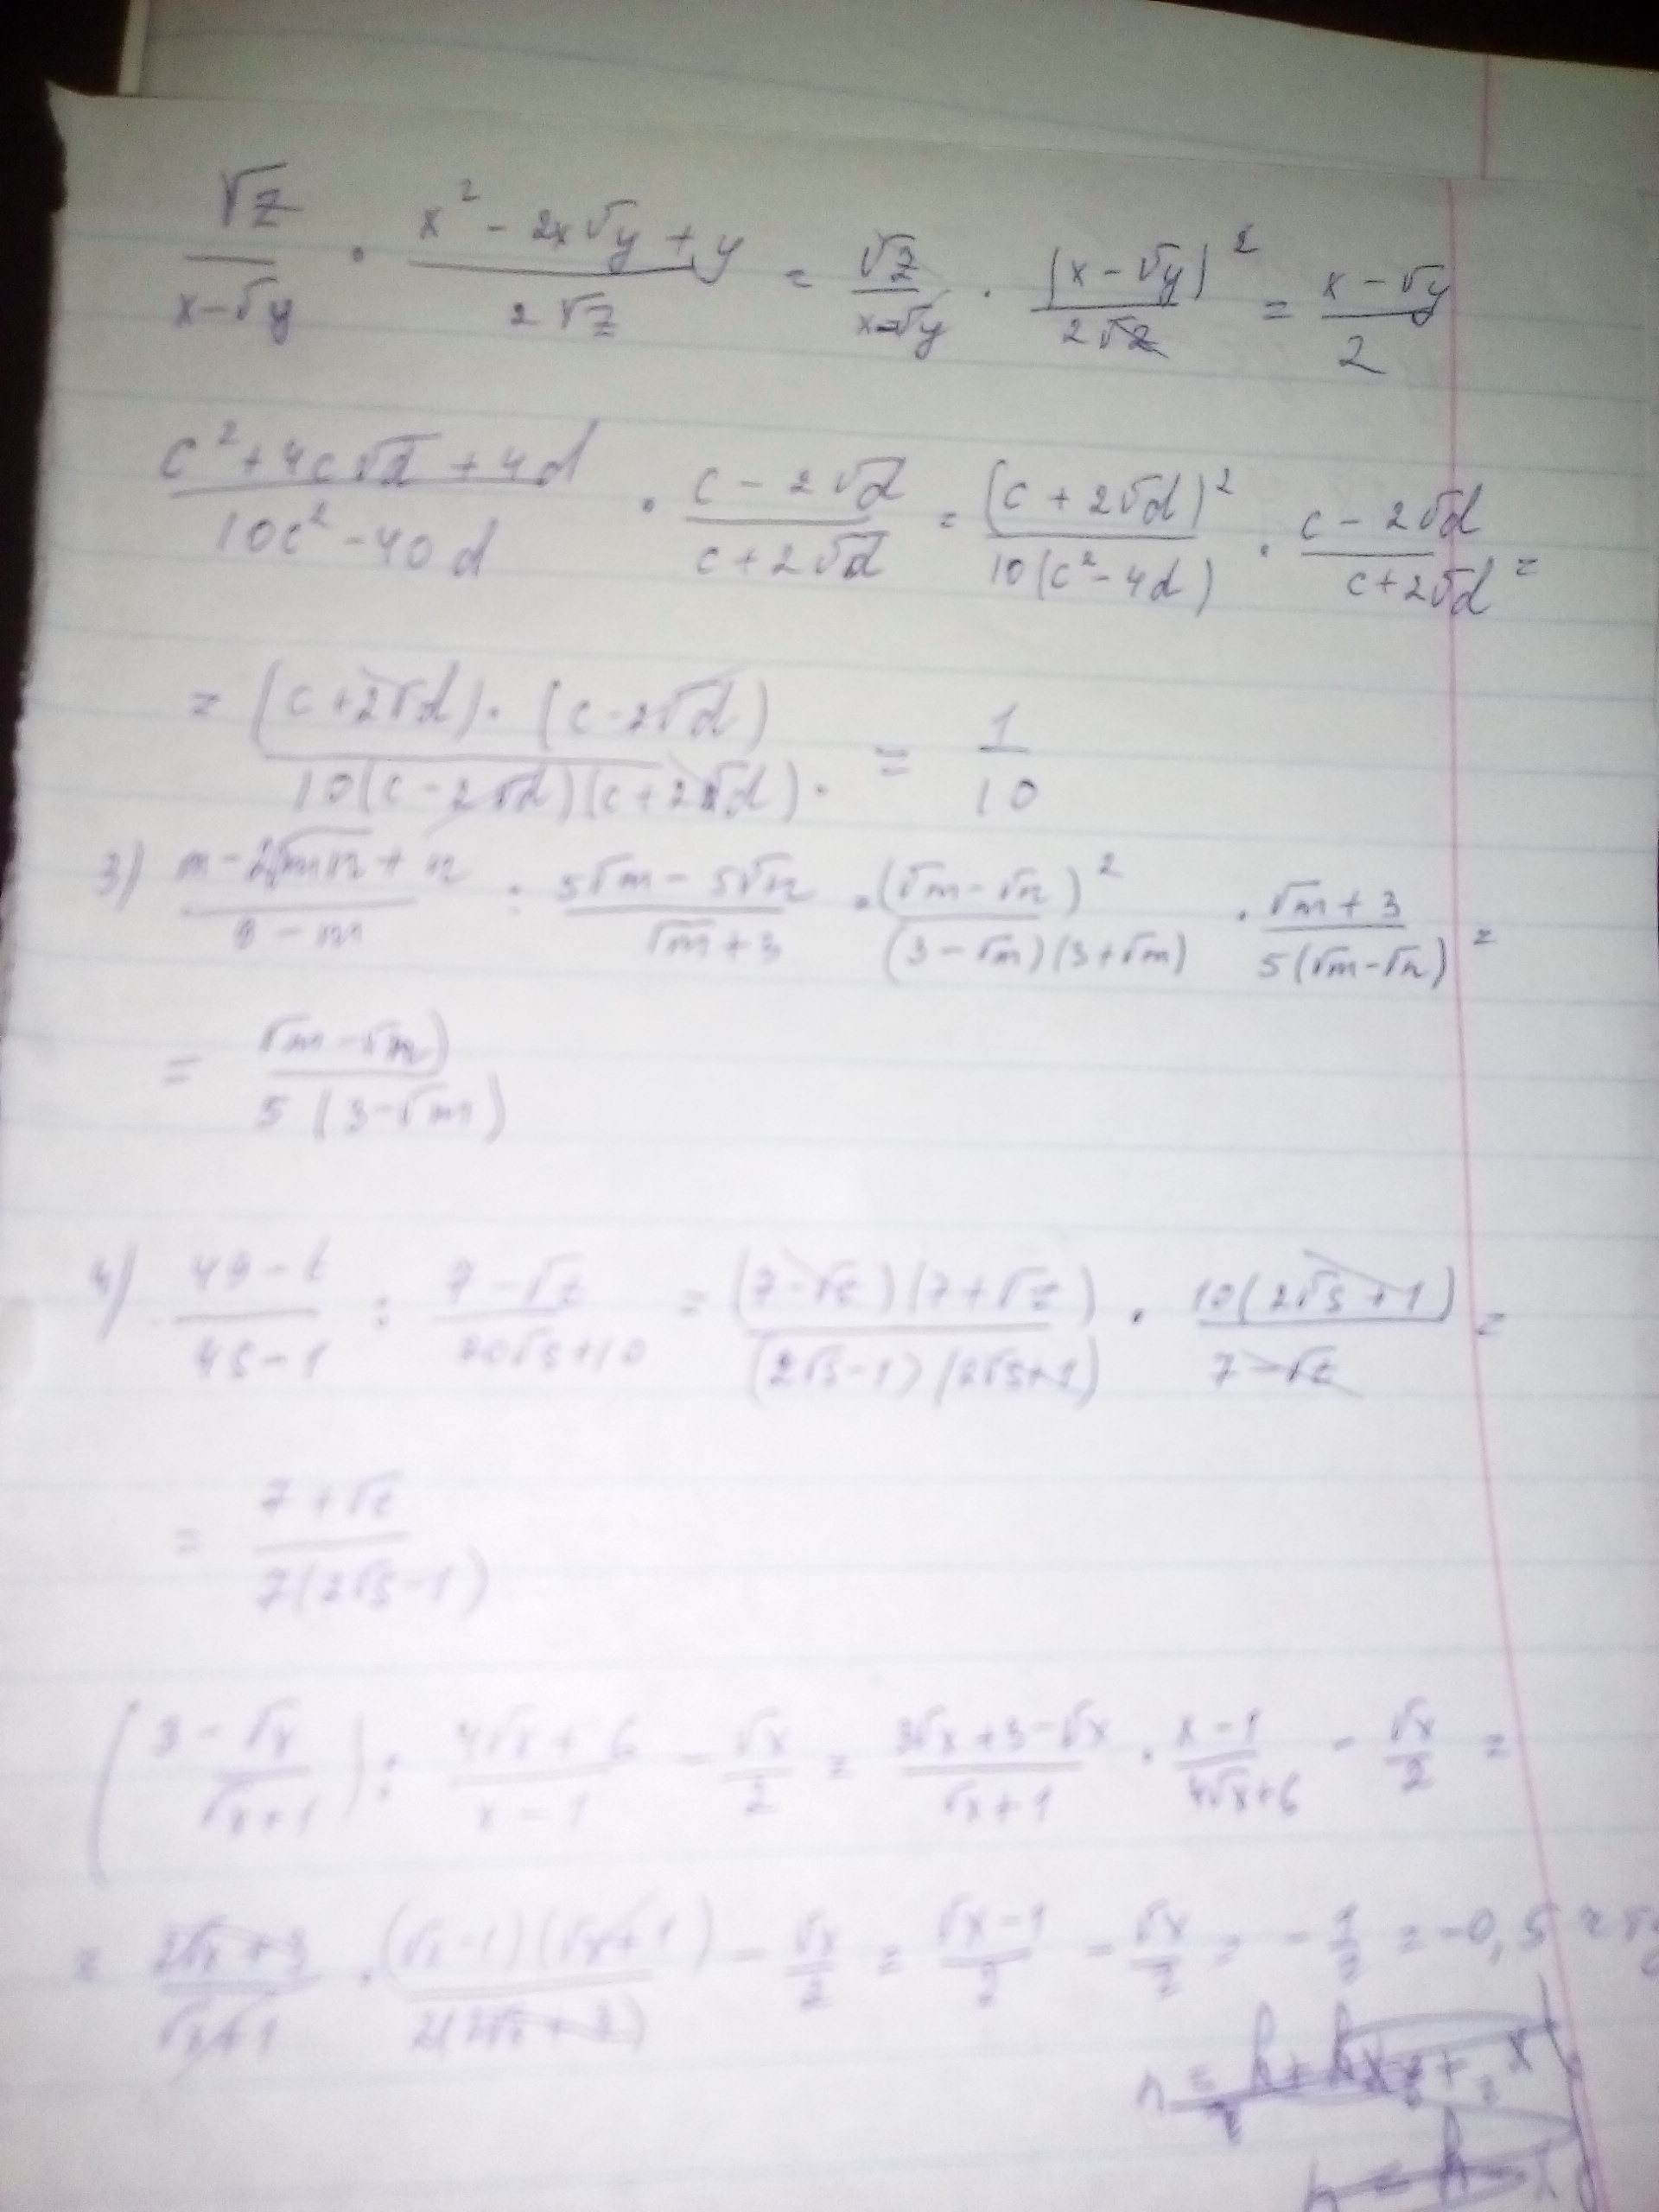 √z / (x-√y) · (x² - 2x√y + y) / (2√z) = √z / (x-√y) · (x-√y)² / (2√z) = (x-√y) / 2
(c² + 4c√d + 4d) / (10c² - 40d) · (c - 2√d) / (c + 2√d) = (c + 2√d)² / (10(c² - 4d)) · (c - 2√d) / (c + 2√d) =
= (c + 2√d) · (c - 2√d) / (10(c - 2√d)(c + 2√d)) · = 1 / 10
3) (m - 2√mn + n) / (9 - m) : (5√m - 5√n) / (√m + 3) = (√m - √n)² / ((3 - √m)(3 + √m)) · (√m + 3) / (5(√m - √n)) =
= √m - √n) / (5(3 - √m))
4) (49 - t) / (4s - 1) : (7 - √t) / (20√s + 10) = (7 - √t)(7 + √t) / ((2√s - 1)(2√s + 1)) · 10(2√s + 1) / (7 - √t) =
= (7 + √t) / (7(2√s - 1))
(3 - √x / (√x + 1)) : (4√x + 6) / (x - 1) - √x / 2 = (3√x + 3 - √x) / (√x + 1) · (x - 1) / (4√x + 6) - √x / 2 =
= (2√x + 3) / (√x + 1) · (√x - 1)(√x + 1) / (2(2√x + 3)) - √x / 2 = (√x - 1) / 2 - √x / 2 = - 1 / 2 = -0,5